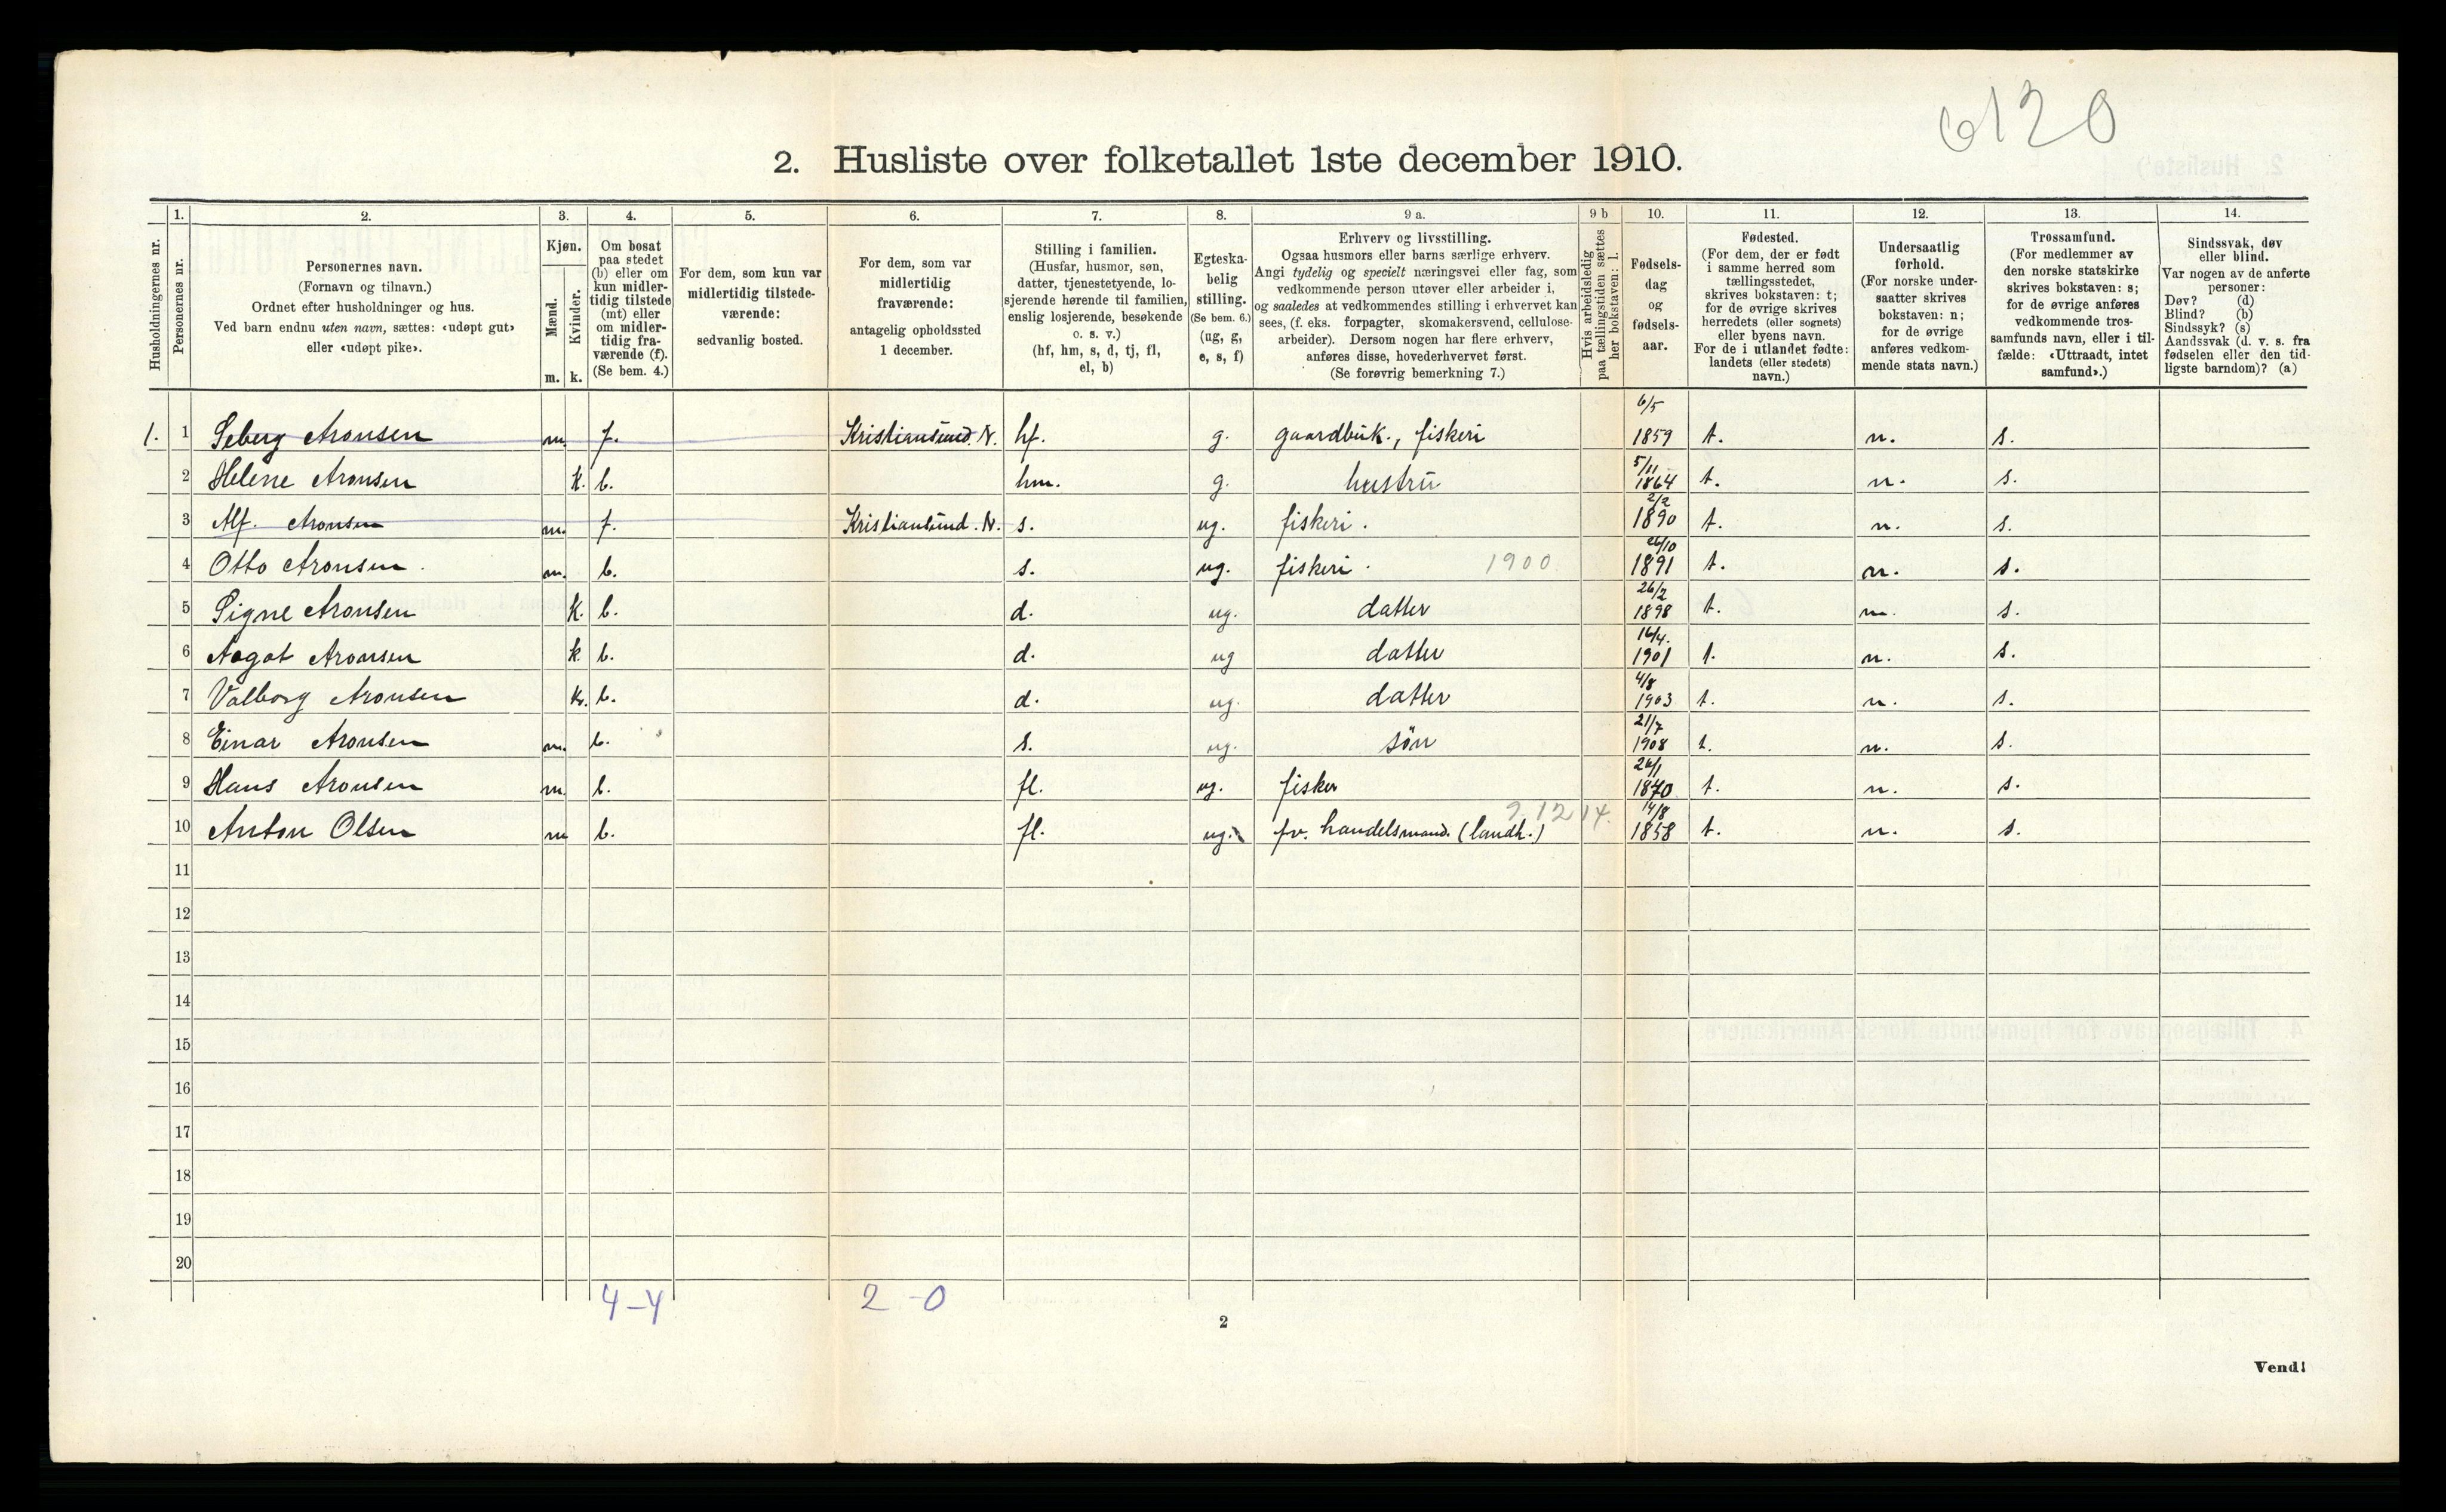 6120
2. Husliste over folketallet 1ste december 1910.
Husholdningernes nr.
1.
Personernes nr.
2.
Personernes navn.
(Fornavn og tilnavn.)
Ordnet efter husholdninger og hus.
Ved barn endnu uten navn, sættes: «udøpt gut»
eller «udøpt pike».
3.
Kjøn.
Mænd.
Kvinder.
m. k.
4.
Om bosat
paa stedet
(b) eller om
kun midler-
tidig tilstede
(mt) eller
om midler-
tidig fra-
værende (f).
(Se bem. 4.)
5.
For dem, som kun var
midlertidig tilstede-
værende:
sedvanlig bosted.
6.
For dem, som var
midlertidig
fraværende:
antagelig opholdssted
1 december.
7.
Stilling i familien.
(Husfar, husmor, søn,
datter, tjenestetyende, lo-
sjerende hørende til familien,
enslig losjerende, besøkende
o. s. v.)
(hf, hm, s, d, tj, fl,
el, b)
8.
Egteska-
belig
stilling.
(Se bem. 6.)
(ug, g,
e, s, f)
9 a.
Erhverv og livsstilling.
Ogsaa husmors eller barns særlige erhverv.
Angi tydelig og specielt næringsvei eller fag, som
vedkommende person utøver eller arbeider i,
og saaledes at vedkommendes stilling i erhvervet kan
sees, (f. eks. forpagter, skomakersvend, cellulose-
arbeider). Dersom nogen har flere erhverv,
anføres disse, hovederhvervet først.
(Se forøvrig bemerkning 7.)
9 b
Hvis arbeidsledig
paa tællingstiden sættes
her bokstaven: l.
10.
Fødsels-
dag
og
fødsels-
aar.
11.
Fødested.
(For dem, der er født
i samme herred som
tællingsstedet,
skrives bokstaven: t;
for de øvrige skrives
herredets (eller sognets)
eller byens navn.
For de i utlandet fødte:
landets (eller stedets)
navn.)
12.
Undersaatlig
forhold.
(For norske under-
saatter skrives
bokstaven: n;
for de øvrige
anføres vedkom-
mende stats navn.)
13.
Trossamfund.
(For medlemmer av
den norske statskirke
skrives bokstaven: s;
for de øvrige anføres
vedkommende tros-
samfunds navn, eller i til-
fælde: «Uttraadt, intet
samfund».)
14.
Sindssvak, døv
eller blind.
Var nogen av de anførte
personer:
Døv? (d)
Blind? (b)
Sindssyk? (s)
Aandssvak (d. v. s. fra
fødselen eller den tid-
ligste barndom)? (a)
1. 1 Seberg Aronsen m. f. Kristiansund. N. hf. g. gaardbruk., fiskeri 6/5 1859 t. n. s.
2 Helene Aronsen k. b. hm. g. hustru 5/11 1864 t. n. s.
3 Alf. Aronsen m. f. Kristiansund. N. s. ug. fiskeri. 2/2 1890 t. n. s.
4 Otto Aronsen. m. b. s. ug. fiskeri. 1900 26/10 1891 t. n. s.
5 Signe Aronsen k. b. d. ug. datter 26/2 1898 t. n. s.
6 Aagot Aronsen k. b. d. ug datter 16/4. 1901 t. n. s.
7 Valborg Aronsen k. b. d. ug. datter 4/8 1903 t. n. s.
8 Einar Aronsen m. b. s. ug. søn 21/7 1908 t. n. s.
9 Hans Aronsen m. b. fl. ug. fisker 26/1 1870 t. n. s.
10 Anton Olsen m b. fl. ug. fv. handelsmand. (landh.) 12 14. 14/8 1858 t. n. s.
11
12
13
14
15
16
17
18
19
20
4-4 2-0
2
Vend!